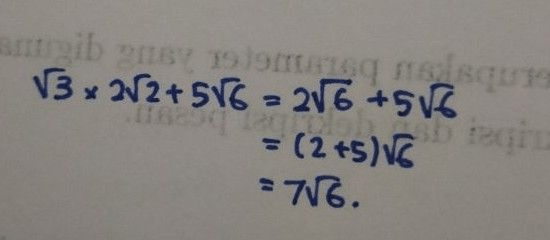 √3 × 2√2 + 5√6 = 2√6 + 5√6
= (2+5)√6
= 7√6.